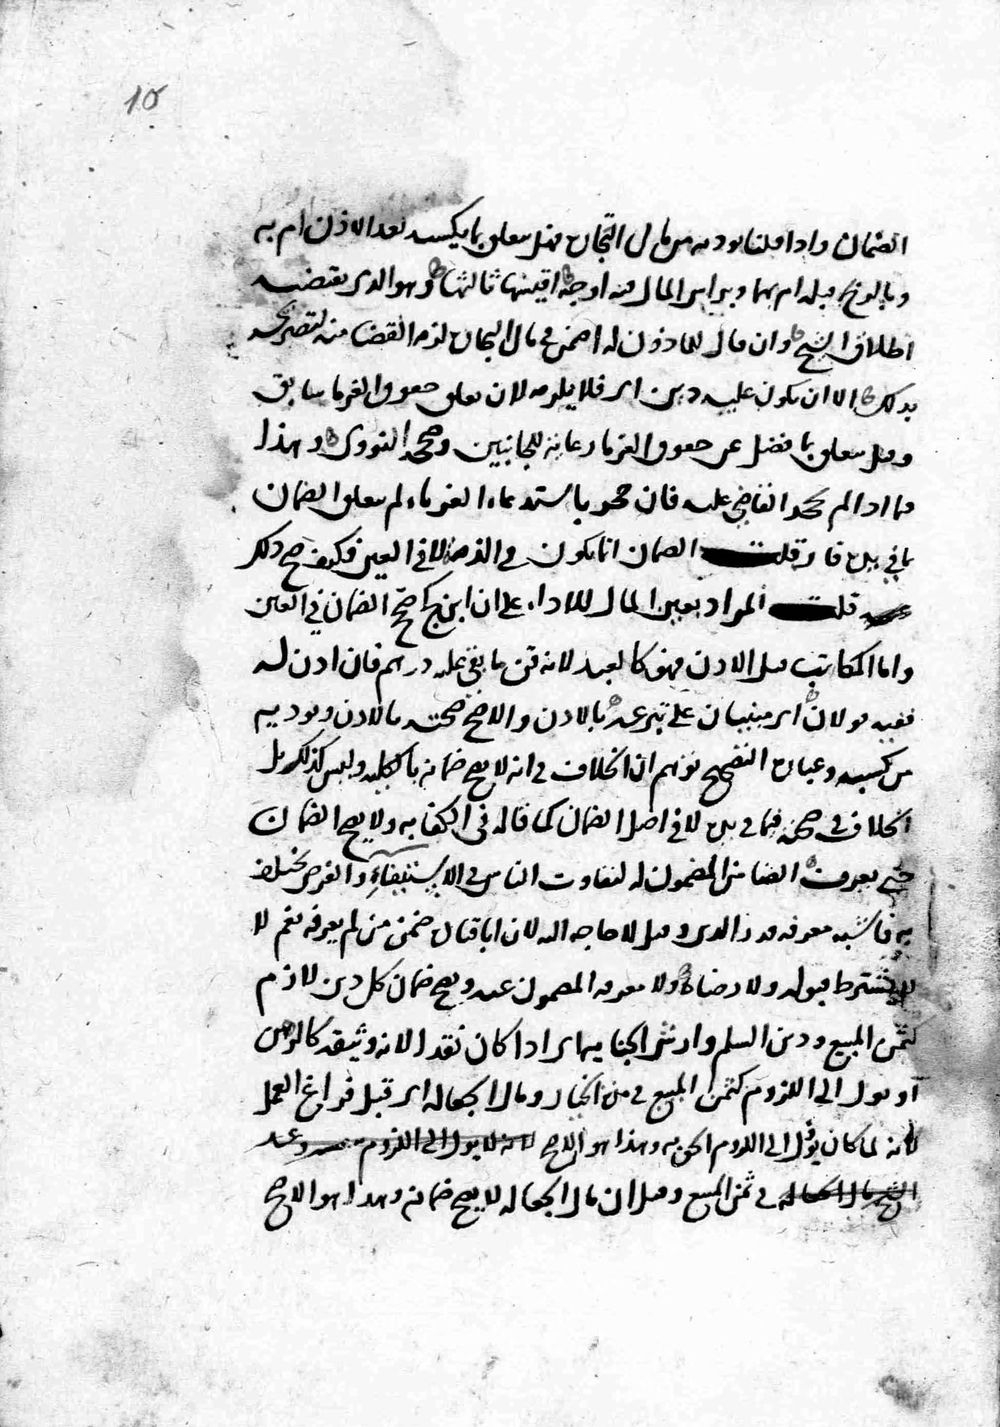 10
الضمان واذا قلنا يوديه من مال التجارة فهل يتعلق بما يكسبه بعد الاذن ام به
وبالربح قبله ام بهما وبراس المال فيه اوجه اقيسها ثالثها وهو الذي يقتضيه
اطلاق الشيخ وان قال للماذون له اضمن في مال التجارة لزمه القضا منه لتصريحه
بذلك الا ان يكون عليه دين اي فلا يلزمه لان تعلق حقوق الغرما سابق
وقيل يتعلق بما فضل عن حقوق الغرما رعاية للجانبين وصححه النووي وهذا
فيما اذا لم يحجر القاضي عليه فان حجر باستدعاء الغرماء لم يتعلق الضمان
بما في يده قلت الضمان انما يكون في الذمة لا في العين فكيف صح ذلك
قلت المراد تعيين المال للاداء على ان ابن كج صحح الضمان في العين
واما المكاتب قبل الاذن فهو كالعبد لانه قن ما بقي عليه درهم فان اذن له
ففيه قولان اي مبنيان على تبرعه بالاذن والاصح صحته بالاذن ويوديه
من كسبه وعبارة التصحيح توهم ان الخلاف في انه لا يصح ضمانه بالكلية وليس كذلك بل
الخلاف في صحته فيما في يده لا في اصل الضمان كما قاله في الكفاية ولا يصح الضمان
حتى يعرف الضامن المضمون له لتفاوت الناس في الاستيفاء والغرض يختلف
به فاشبه معرفة قدر الدين وقيل لا حاجة اليه لان ابا قتادة ضمن من لم يعرفه نعم لا
يشترط قبوله ولا رضاه ولا معرفة المضمون عنه ويصح ضمان كل دين لازم
كثمن المبيع ودين السلم وارش الجناية اي اذا كان نقدا لانه وثيقة كالرهن
او يول الى اللزوم كثمن المبيع في مدة الخيار ومال الجعالة اي قبل فراغ العمل
لانه لما كان يؤل الى اللزوم الحق به وهذا هو الاصح لانه لا يول الى اللزوم
مال الجعالة في ثمن المبيع وقيل ان مال الجعالة لا يصح ضمانه وهذا هو الاصح